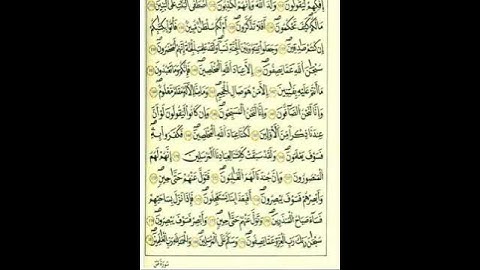 إِفْكِهِمْ لَيَقُولُونَ وَلَدَ ٱللَّهُ وَإِنَّهُمْ لَكَٰذِبُونَ أَصْطَفَى ٱلْبَنَاتِ عَلَى ٱلْبَنِينَ
مَا لَكُمْ كَيْفَ تَحْكُمُونَ أَفَلَا تَذَكَّرُونَ أَمْ لَكُمْ سُلْطَٰنٌ مُّبِينٌ فَأْتُوا۟ بِكِتَٰبِكُمْ
إِن كُنتُمْ صَٰدِقِينَ وَجَعَلُوا۟ بَيْنَهُۥ وَبَيْنَ ٱلْجِنَّةِ نَسَبًا وَلَقَدْ عَلِمَتِ ٱلْجِنَّةُ إِنَّهُمْ لَمُحْضَرُونَ
سُبْحَٰنَ ٱللَّهِ عَمَّا يَصِفُونَ إِلَّا عِبَادَ ٱللَّهِ ٱلْمُخْلَصِينَ فَإِنَّكُمْ وَمَا تَعْبُدُونَ
مَآ أَنتُمْ عَلَيْهِ بِفَٰتِنِينَ إِلَّا مَنْ هُوَ صَالِ ٱلْجَحِيمِ وَمَا مِنَّآ إِلَّا لَهُۥ مَقَامٌ مَّعْلُومٌ
وَإِنَّا لَنَحْنُ ٱلصَّآفُّونَ وَإِنَّا لَنَحْنُ ٱلْمُسَبِّحُونَ وَإِن كَانُوا۟ لَيَقُولُونَ لَوْ أَنَّ
عِندَنَا ذِكْرًا مِّنَ ٱلْأَوَّلِينَ لَكُنَّا عِبَادَ ٱللَّهِ ٱلْمُخْلَصِينَ فَكَفَرُوا۟ بِهِۦ
فَسَوْفَ يَعْلَمُونَ وَلَقَدْ سَبَقَتْ كَلِمَتُنَا لِعِبَادِنَا ٱلْمُرْسَلِينَ إِنَّهُمْ لَهُمُ
ٱلْمَنصُورُونَ وَإِنَّ جُندَنَا لَهُمُ ٱلْغَٰلِبُونَ فَتَوَلَّ عَنْهُمْ حَتَّىٰ حِينٍ
وَأَبْصِرْهُمْ فَسَوْفَ يُبْصِرُونَ أَفَبِعَذَابِنَا يَسْتَعْجِلُونَ فَإِذَا نَزَلَ بِسَاحَتِهِمْ
فَسَآءَ صَبَاحُ ٱلْمُنذَرِينَ وَتَوَلَّ عَنْهُمْ حَتَّىٰ حِينٍ وَأَبْصِرْ فَسَوْفَ يُبْصِرُونَ
سُبْحَٰنَ رَبِّكَ رَبِّ ٱلْعِزَّةِ عَمَّا يَصِفُونَ وَسَلَٰمٌ عَلَى ٱلْمُرْسَلِينَ وَٱلْحَمْدُ لِلَّهِ رَبِّ ٱلْعَٰلَمِينَ
سورة ص